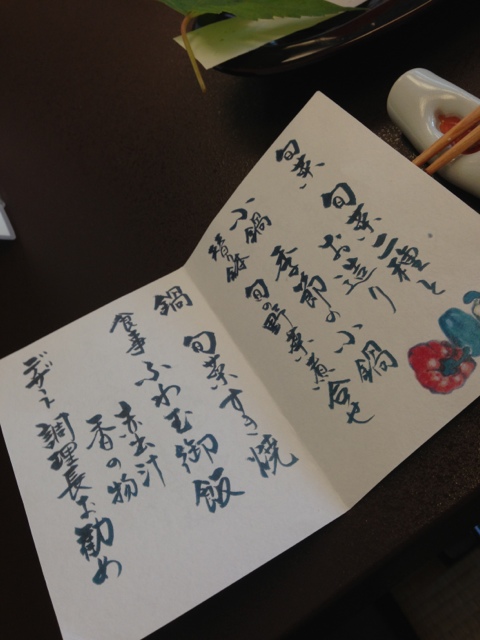 旬菜 旬菜二種と
お造り
小鍋 季節の小鍋
旬の野菜煮合せ
鍋 旬菜すき焼
食事 ふわ玉御飯
赤出汁
香の物
デザート 調理長お勧め